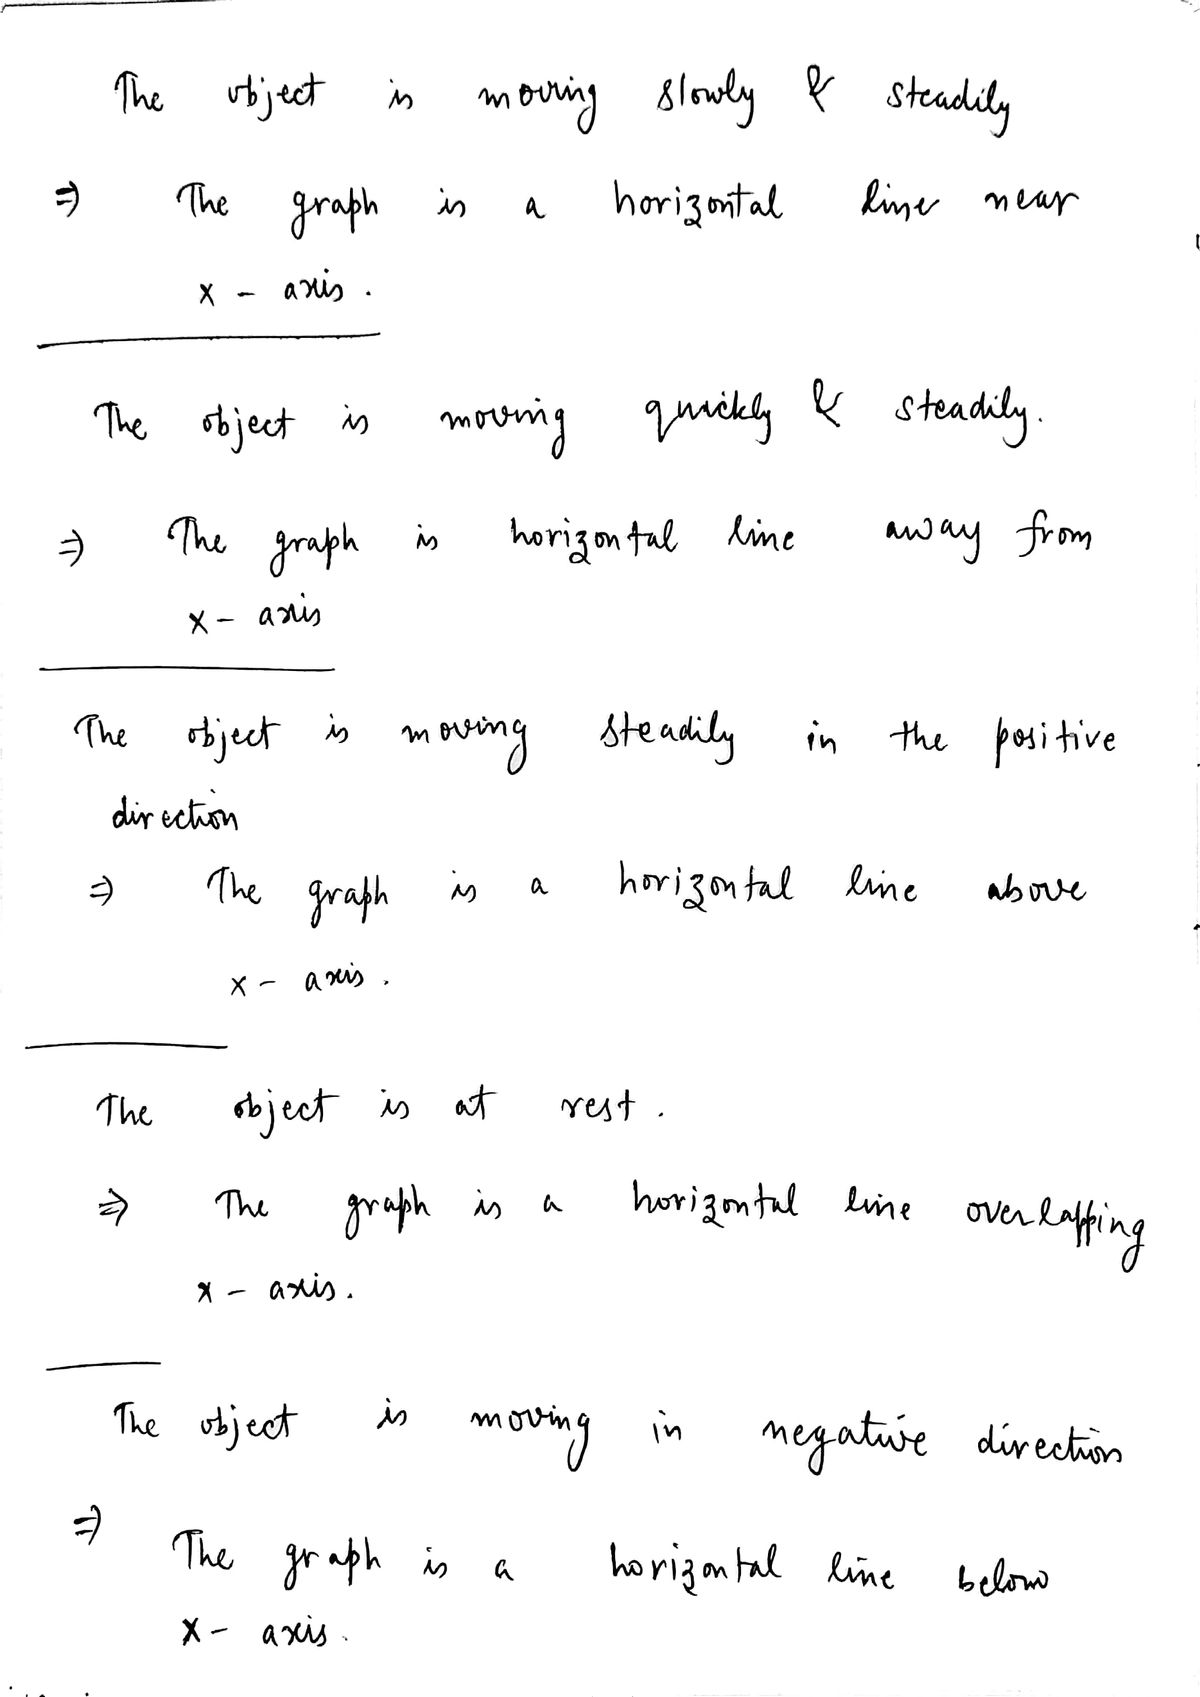 The object is moving slowly & steadily
⇒ The graph is a horizontal line near
x - axis.
The object is moving quickly & steadily.
⇒ The graph is horizontal line away from
x - axis
The object is moving steadily in the positive
direction
⇒ The graph is a horizontal line above
x - axis.
The object is at rest.
⇒ The graph is a horizontal line overlapping
x - axis.
The object is moving in negative direction
⇒ The graph is a horizontal line below
x - axis.